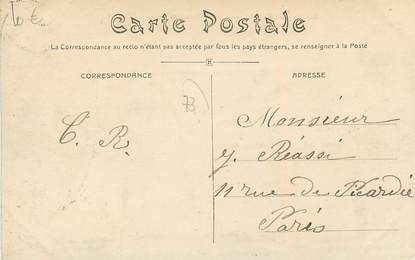 10 €
Carte Postale
La Correspondance au recto n'étant pas acceptée par tous les pays étrangers, se renseigner à la Poste
CORRESPONDANCE
ADRESSE
C. R.
Monsieur
Réassi
11 rue de Picardie
Paris